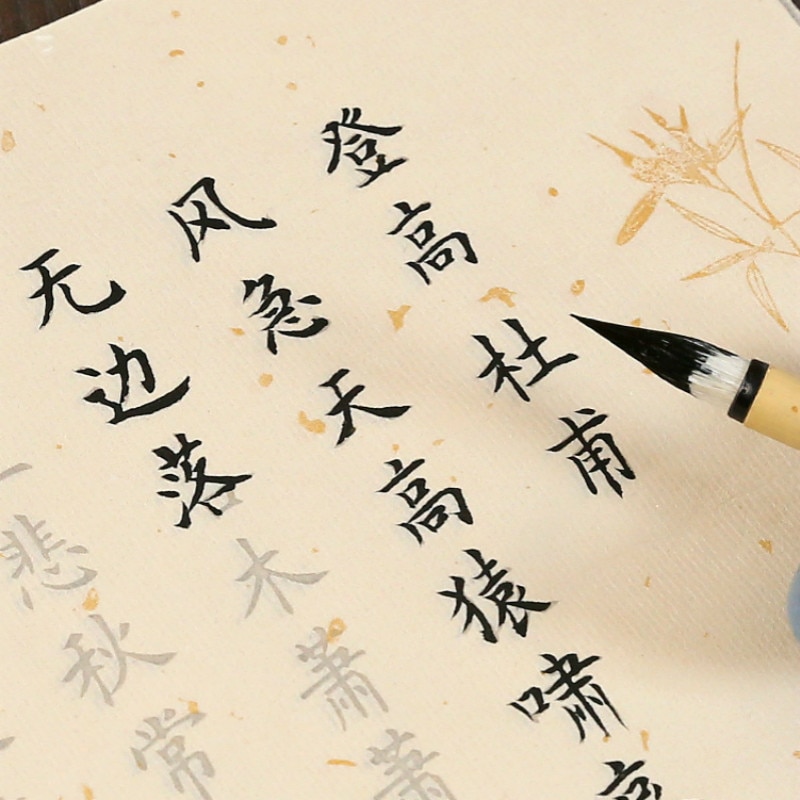 登高 杜甫
风急天高猿啸
无边落木萧萧
悲秋常